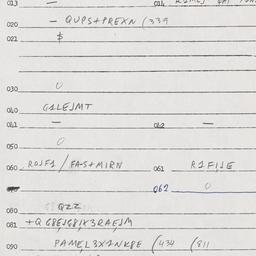 013 — 014
020 — QUPS+PREXN (339
021 $
030 0
040 G1LEJMT
041 — 042 —
050 0
060 ROJF1 / FA-S+MIRN 061 R1FIJE
062 0
080 QZZ
081 +Q G8EJG8JX3RAEJM
090 PAMEL3X1NK8E (434 (811